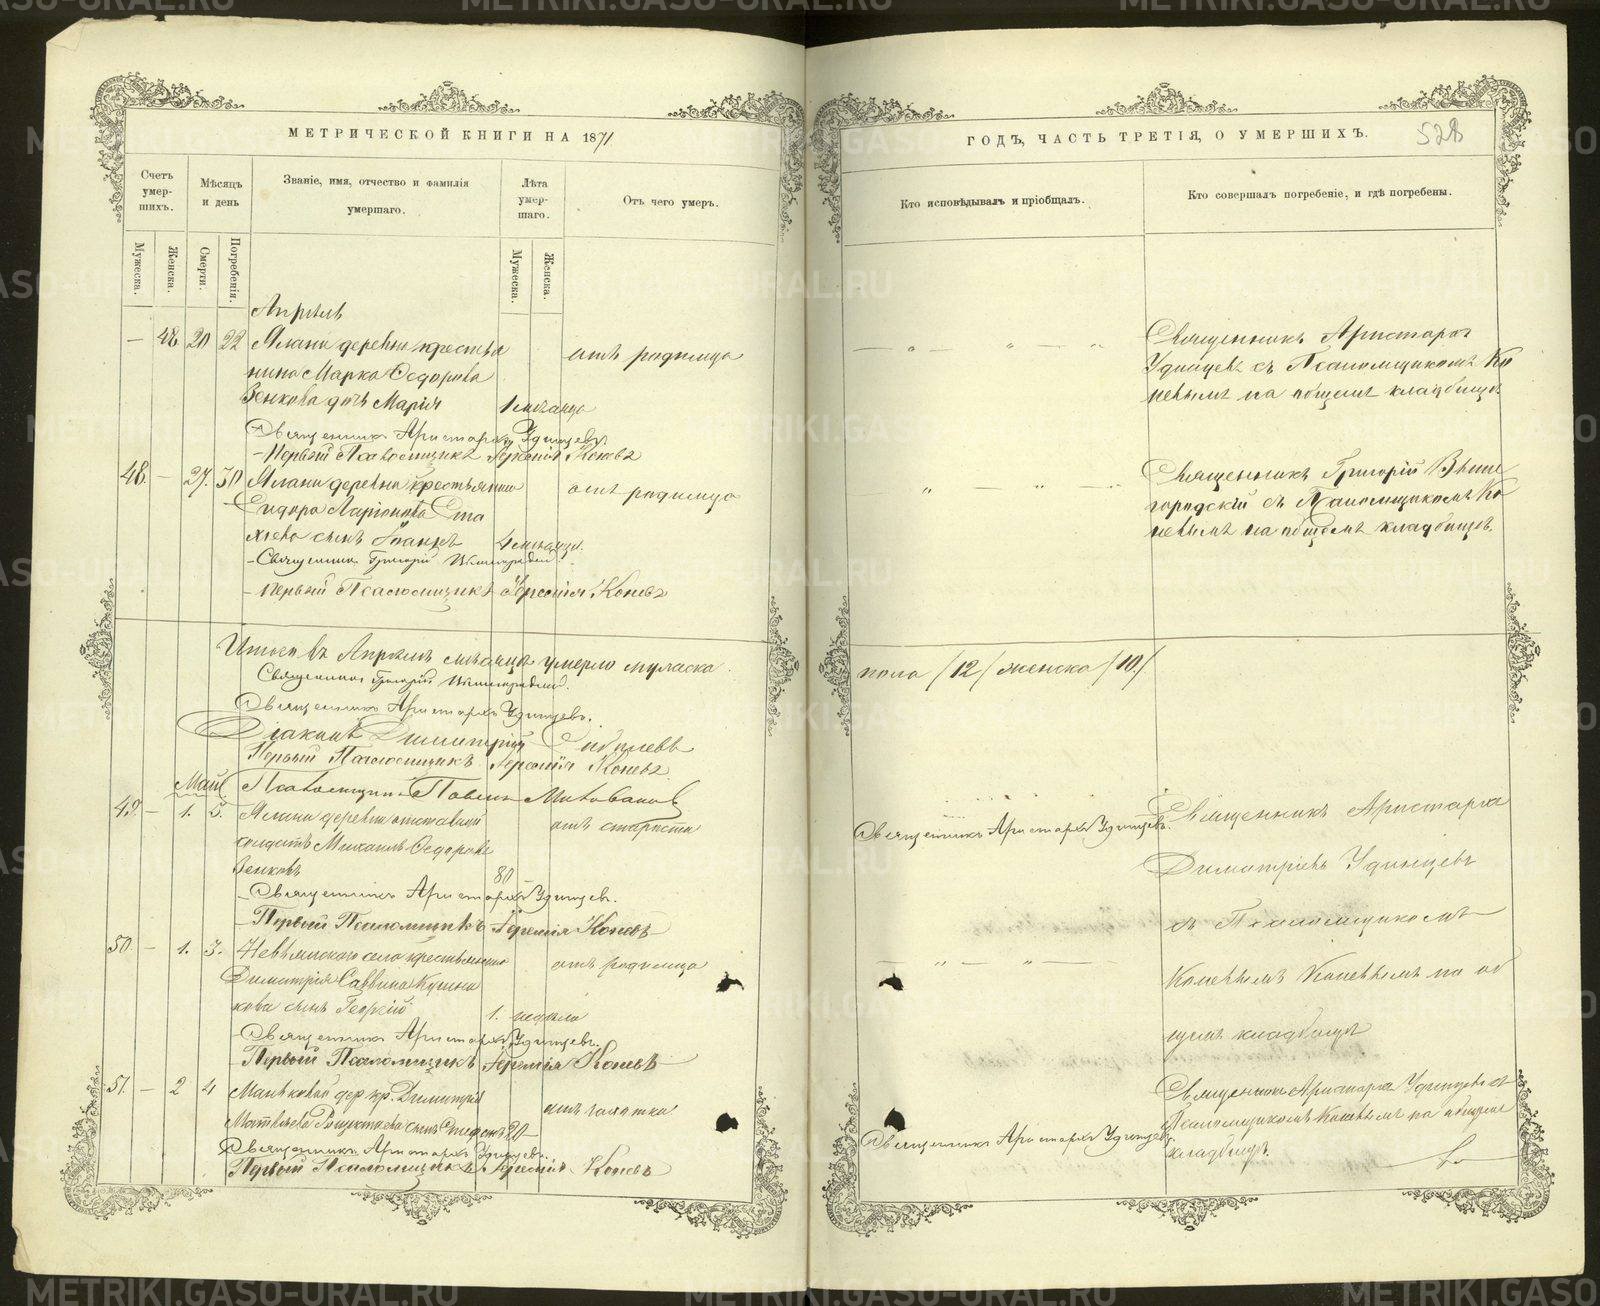 МЕТРИЧЕСКОЙ КНИГИ НА 1871
ГОДЪ, ЧАСТЬ ТРЕТІЯ, О УМЕРШИХЪ.
528
Счетъ умер-шихъ.
Мѣсяцъ и день
Званіе, имя, отчество и фамилія умершаго.
Лѣта умер-шаго.
Отъ чего умеръ.
Кто исповѣдывалъ и пріобщалъ.
Кто совершалъ погребеніе, и гдѣ погребены.
Мужеска.
Женска.
Смерти.
Погребенія.
Мужеска.
Женска.
Апрѣль
— 48 20 22 Ялани деревни крестья
нина Марка Ѳедорова
Зенкова дочь Марія 1 мѣсяцъ
отъ родимца
Священникъ Аристархъ
Удинцевъ съ Псаломщикомъ Ко
невымъ на общемъ кладбищѣ.
Священникъ Аристархъ Удинцевъ.
Первый Псаломщикъ Іеремія Коневъ
48. — 27. 30 Ялани деревни крестьянина
Сидора Ларіонова Ста
хѣева сынъ Іоаннъ 4 мѣсяца.
отъ родимца
Священникъ Григорій Выше
городскій съ Псаломщикомъ Ко
невымъ на общемъ кладбищѣ.
Священникъ Григорій Вышегородскій.
Первый Псаломщикъ Іеремія Коневъ
Итого въ Апрѣлѣ мѣсяцѣ умерло мужеска
пола /12/ женска /10/.
Священникъ Григорій Вышегородскій.
Священникъ Аристархъ Удинцевъ.
Діаконъ Димитрій
Первый Псаломщикъ Іеремія Коневъ.
Май
Псаломщикъ Павелъ
49 — 1. 3. Ялани деревни отставной
солдатъ Михаилъ Ѳедоровъ
Зенковъ 80
отъ старости
Священникъ Аристархъ Удинцевъ.
Священникъ Аристархъ
Димитріевъ Удинцевъ
съ Псаломщикомъ
Коневымъ на об
щемъ кладбищѣ
Священникъ Аристархъ Удинцевъ.
Первый Псаломщикъ Іеремія Коневъ
50. — 1. 3. Невьянскаго села крестьянина
Димитрія Саввина
кова сынъ Георгій 1. недѣля
отъ родимца
Священникъ Аристархъ Удинцевъ.
Первый Псаломщикъ Іеремія Коневъ
51. — 2 4 Маньковой дер. кр. Димитрія
Матвѣева сынъ 20
Священникъ Аристархъ Удинцевъ
Священникъ Аристархъ Удинцевъ съ
Псаломщикомъ Коневымъ на общемъ
кладбищѣ.
Священникъ Аристархъ Удинцевъ.
Первый Псаломщикъ Іеремія Коневъ
METRIKI.GASO-URAL.RU